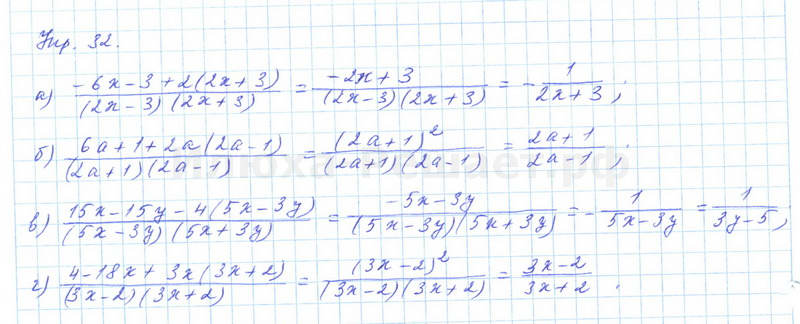 Упр. 32.
а) (-6x-3+2(2x+3))/((2x-3)(2x+3)) = (-2x+3)/((2x-3)(2x+3)) = -1/(2x+3);
б) (6a+1+2a(2a-1))/((2a+1)(2a-1)) = (2a+1)²/((2a+1)(2a-1)) = (2a+1)/(2a-1);
в) (15x-15y-4(5x-3y))/((5x-3y)(5x+3y)) = (-5x-3y)/((5x-3y)(5x+3y)) = -1/(5x-3y) = 1/(3y-5);
г) (4-18x+3x(3x+2))/((3x-2)(3x+2)) = (3x-2)²/((3x-2)(3x+2)) = (3x-2)/(3x+2).